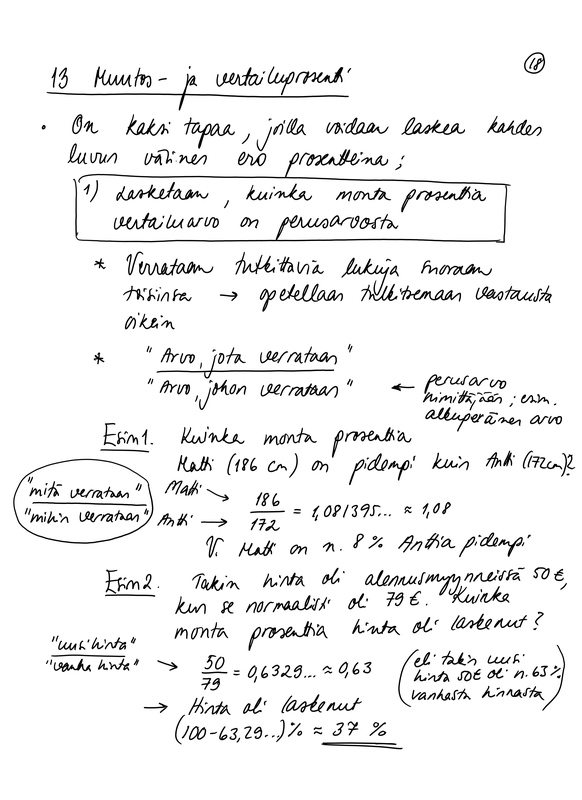 18
13 Muutos- ja vertailuprosentti
• On kaksi tapaa, joilla voidaan laskea kahden
luvun välinen ero prosentteina;
1) Lasketaan, kuinka monta prosenttia
vertailuarvo on perusarvosta
* Verrataan tutkittavia lukuja suoraan
toisiinsa → opetellaan tulkitsemaan vastausta
oikein
* "Arvo, jota verrataan"
"Arvo, johon verrataan"
← perusarvo
nimittäjään; esim.
alkuperäinen arvo
Esim1. Kuinka monta prosenttia
Matti (186 cm) on pidempi kuin Antti (172cm)?
"mitä verrataan"
"mihin verrataan"
Matti → 186
Antti → 172
= 1,081395... ≈ 1,08
V. Matti on n. 8 % Anttia pidempi
Esim2. Takin hinta oli alennusmyynneissä 50 €,
kun se normaalisti oli 79 €. Kuinka
monta prosenttia hinta oli laskenut?
"uusi hinta"
"vanha hinta"
→ 50/79 = 0,6329... ≈ 0,63
(eli takin uusi
hinta 50€ oli n. 63 %
vanhasta hinnasta)
→ Hinta oli laskenut
(100-63,29...) % ≈ 37 %